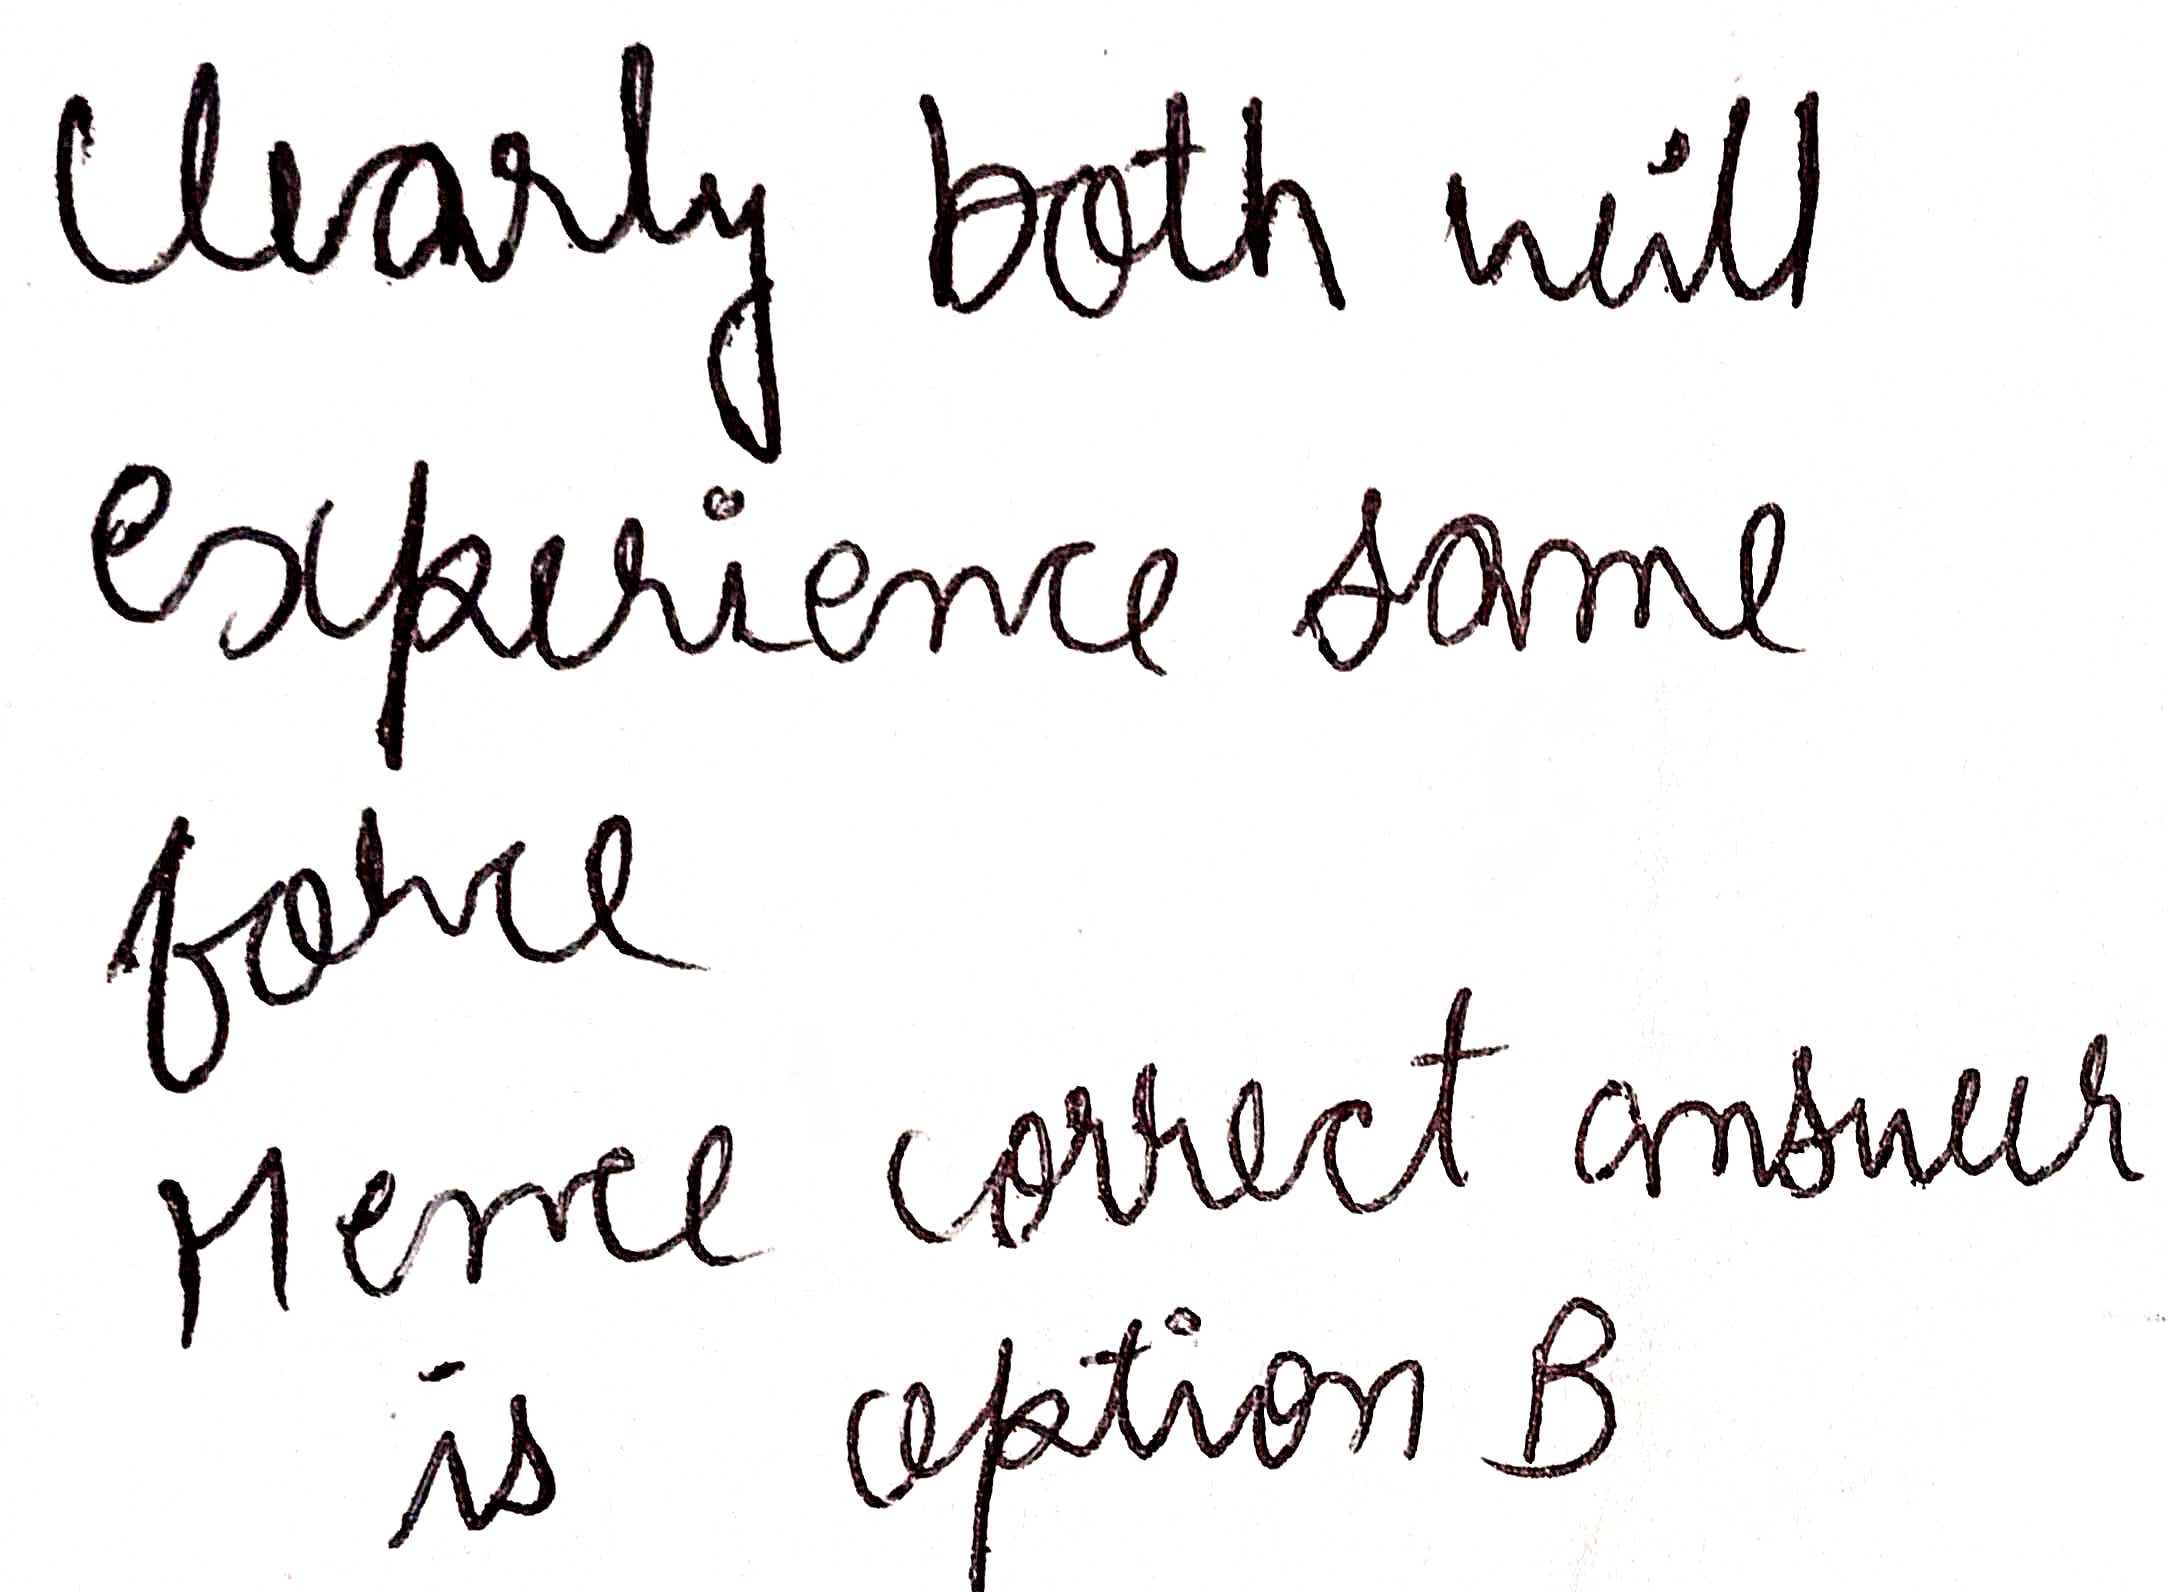 Clearly both will
experience same
force
Hence correct answer
is option B